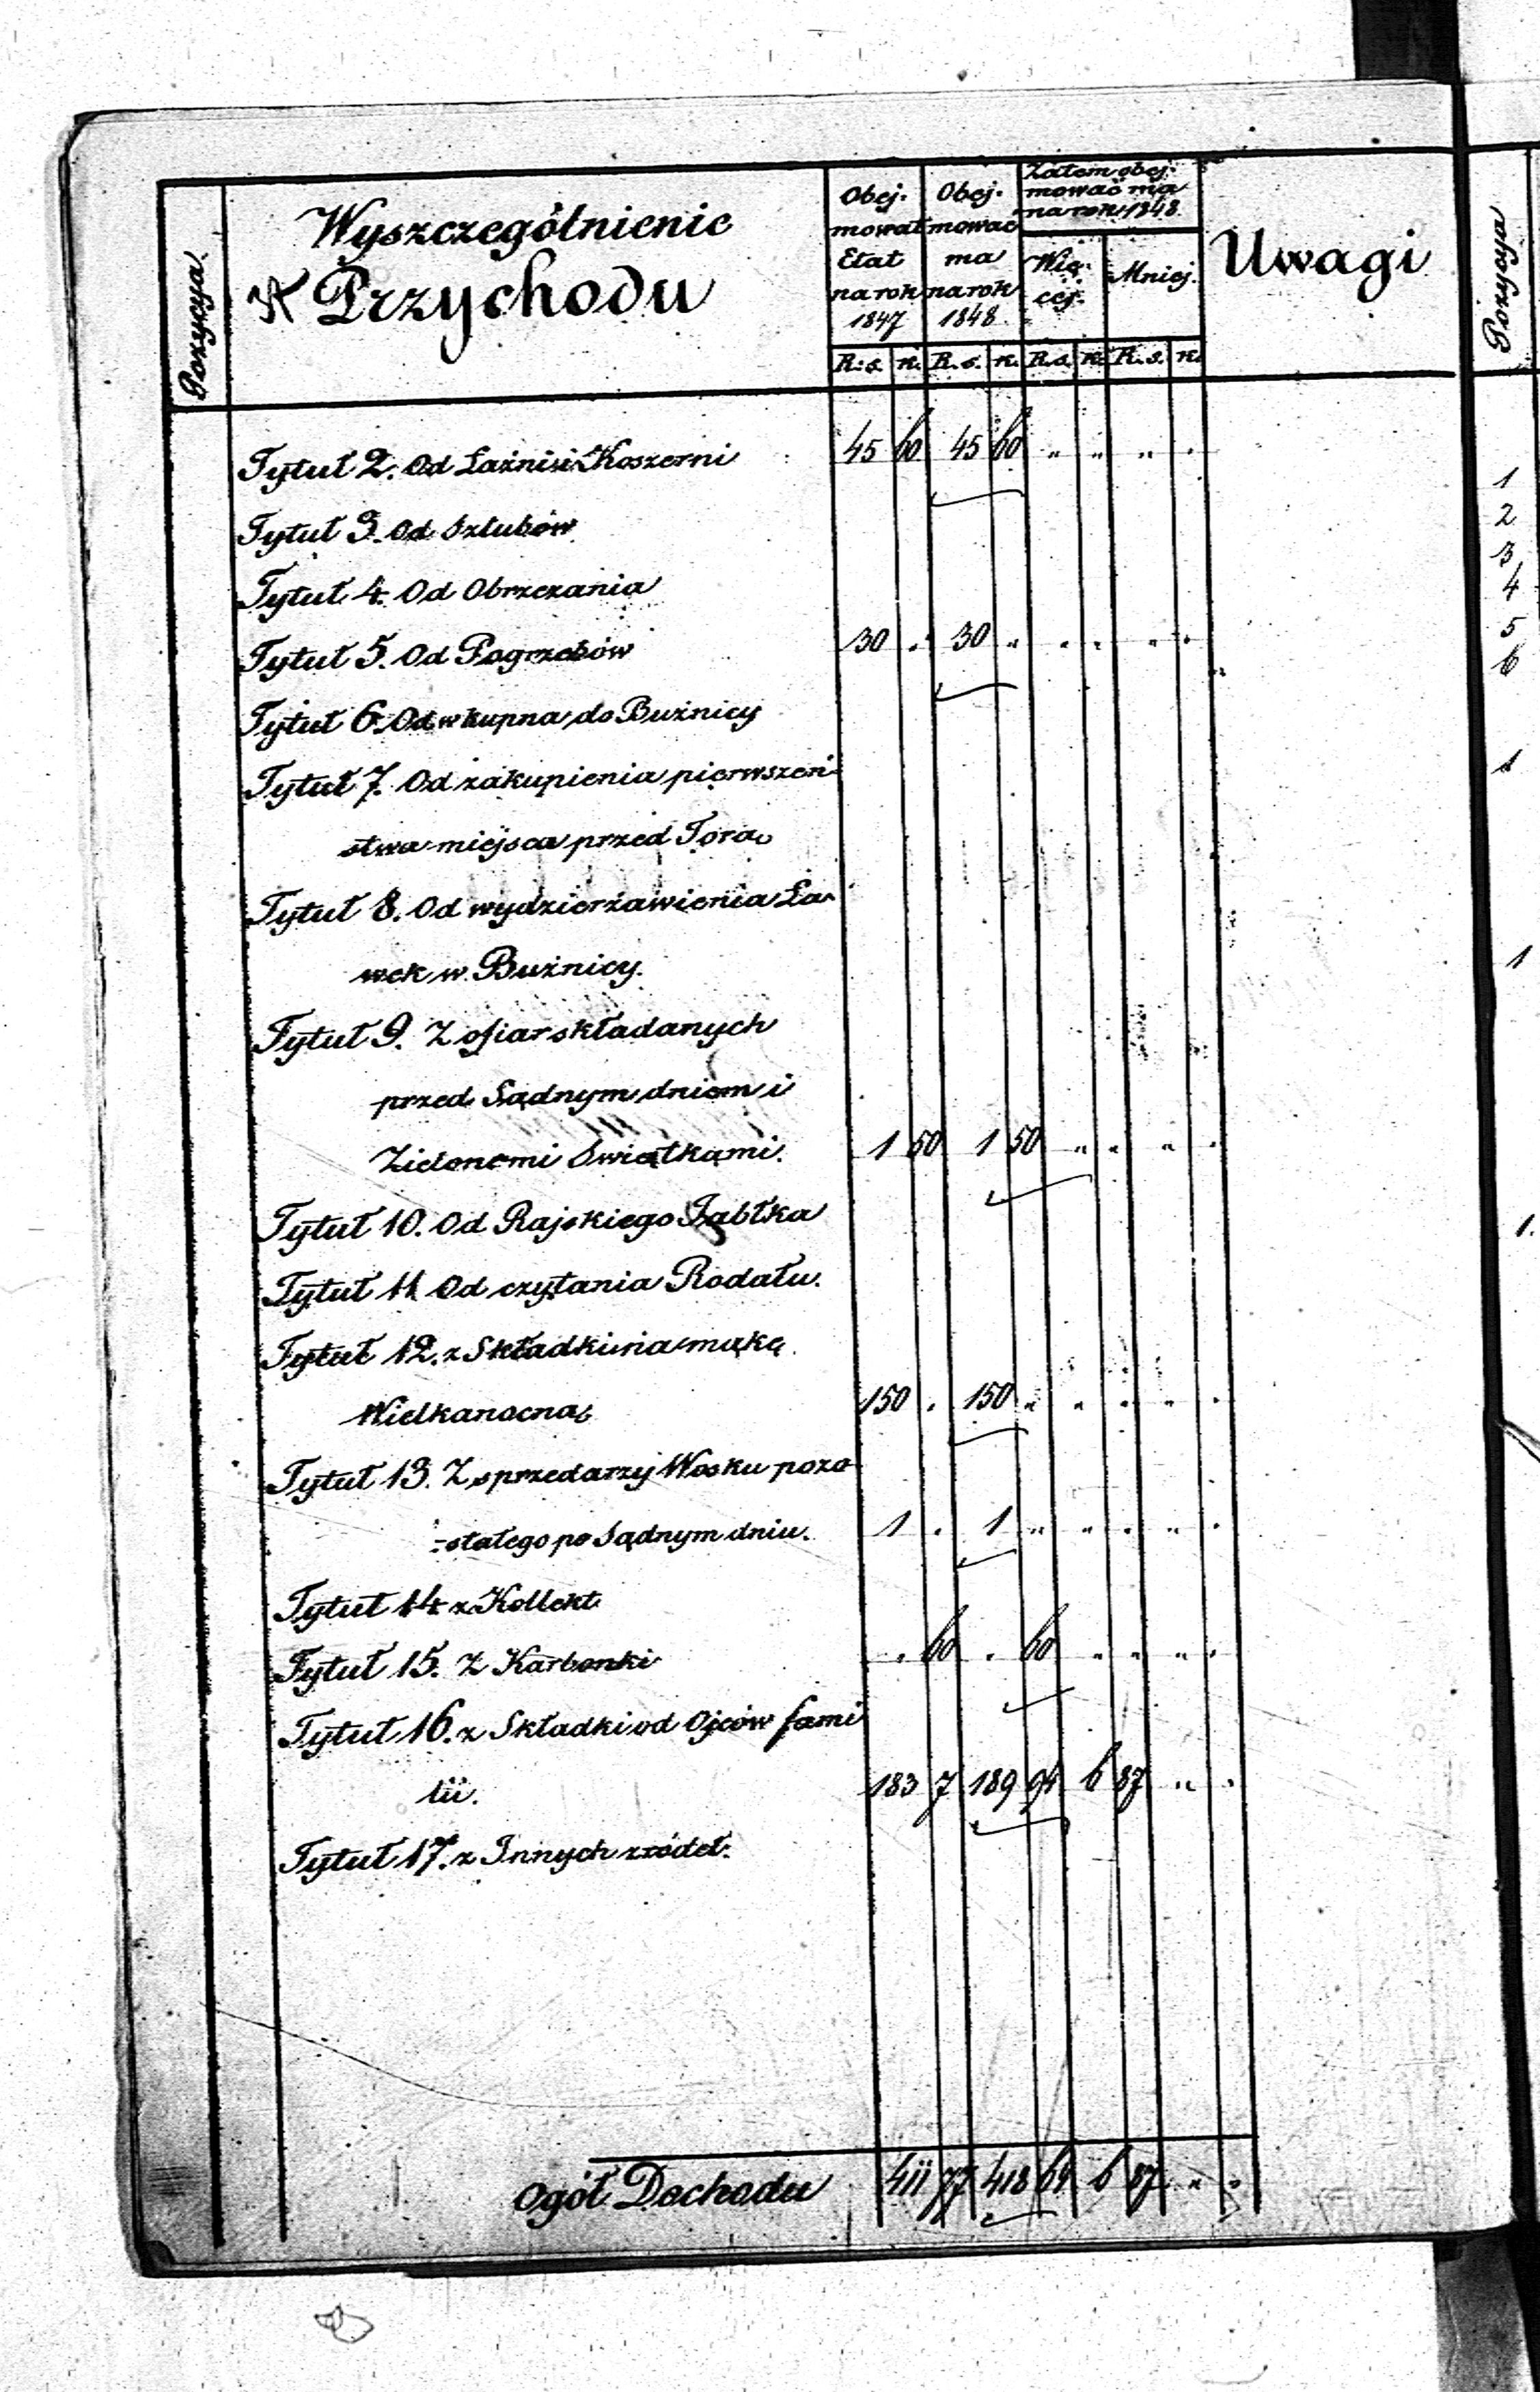 Pozycya.
Wyszczególnienie
Przychodu
Obej-
mował
Etat
na rok
1847
Obej-
mować
ma
na rok
1848
Zatem obej-
mować ma
na rok 1848.
Wię-
cej.
Mniej.
Uwagi
R: s. k. R. s. k. R. s. k. R. s. k.
Tytuł 2. Od Łaźni i Koszerni 45 60 45 60 " " " "
Tytuł 3. Od Szlubów
Tytuł 4. Od Obrzezania
Tytuł 5. Od Pogrzebów 30 " 30 " " " " "
Tytuł 6. Od wkupna do Bużnicy
Tytuł 7. Od zakupienia pierwszeń-
stwa miejsca przed Torą
Tytuł 8. Od wydzierżawienia Ła-
wek w Bużnicy.
Tytuł 9. Z ofiar składanych
przed Sądnym dniem i
Zielonemi Swiątkami. 1 50 1 50 " " " "
Tytuł 10. Od Rajskiego Jabłka
Tytuł 11. Od czytania Rodału.
Tytuł 12. z Składki na mąkę
Wielkanocną 150 " 150 " " " " "
Tytuł 13. Z sprzedarzy Wosku pozo-
-stałego po Sądnym dniu. 1 " 1 " " " " "
Tytuł 14. z Kollekt
Tytuł 15. Z Karbonki " 60 " 60 " " " "
Tytuł 16. z Składki od Ojców fami
lii. 183 7 189 94 6 87 " "
Tytuł 17. z Innych źródeł.
Ogół Dochodu 411 77 418 64 6 87 " "
Pozycya
1
2
3
4
5
6
1
1
1.